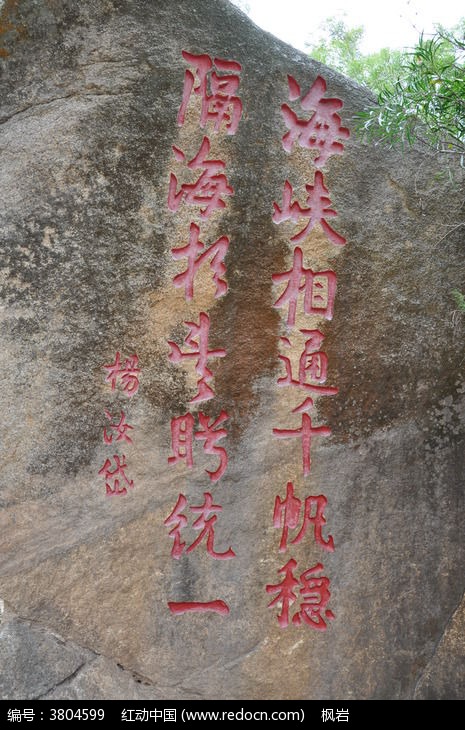 海峡相通千帆稳
隔海统一
楊汝岱
编号：3804599 红动中国 (www.redocn.com) 枫岩